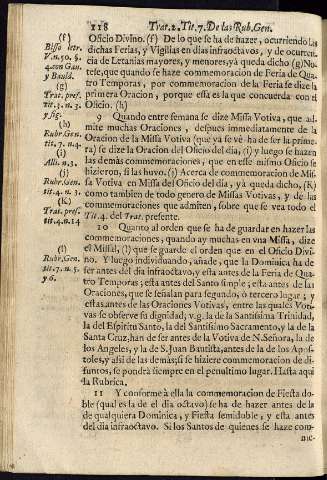 118 Trat. 2. Tit. 7. De las Rub. Gen.
(f)
Bisso letr.
V. n. 50. §.
4. con Gan.
y Bauld.
(g)
Trat. pres.
tit. 3. n. 3.
y sig.
(h)
Rubr. Gen.
tit. 7. n. 4.
(i)
Alli n. 3.
(j)
Rubr. Gen.
tit. 4. n. 3.
(K)
Trat. pres.
tit. 4. n. 14
(l)
Rubr. Gen.
tit. 7. n. 5.
y 6.
Oficio Divino. (f) De lo que se ha de hazer, ocurriendo las
dichas Ferias, y Vigilias en dias infraoctavos, y de ocurren-
cia de Letanias mayores, y menores, yà queda dicho (g) No-
tese, que quando se haze commemoracion de Feria de Qua-
tro Temporas, por commemoracion de la Feria se dize la
primera Oracion, porque essa es la que concuerda con el
Oficio. (h)
9 Quando entre semana se dize Missa Votiva, que ad-
mite muchas Oraciones, despues immediatamente de la
Oracion de la Missa Votiva (que ya se vè ha de ser la prime-
ra) se dize la Oracion del Oficio del dia, (i) y luego se hazen
las demàs commemoraciones, que en esse mismo Oficio se
hizieron, si las huvo. (j) Acerca de commemoracion de Mis-
sa Votiva en Missa del Oficio del dia, yà queda dicho, (K)
como tambien de todo genero de Missas Votivas, y de las
commemoraciones que admiten, sobre que se vea todo el
Tit. 4. del Trat. presente.
10 Quanto al orden que se ha de guardar en hazer las
commemoraciones, quando ay muchas en vna Missa, dize
el Missal, (l) que se guarde el orden que en el Oficio Divi-
no. Y luego individuando, añade, que la Dominica ha de
ser antes del dia infraoctavo, y esta antes de la Feria de Qua-
tro Temporas; esta antes del Santo simple; esta antes de las
Oraciones, que se señalan para segundo, ò tercero lugar; y
estas antes de las Oraciones Votivas, entre las quales Voti-
vas se observe su dignidad; v. g. la de la Santissima Trinidad,
la del Espiritu Santo, la del Santissimo Sacramento, y la de la
Santa Cruz, han de ser antes de la Votiva de N. Señora, la de
los Angeles, y la de S. Juan Bautista, antes de la de los Apos-
toles, y assi de las demàs; si se hiziere commemoracion de di-
funtos, se pondrà siempre en el penultimo lugar. Hasta aqui
la Rubrica.
11 Y conforme à ella la commemoracion de Fiesta do-
ble (qual es la de el dia octavo) se ha de hazer antes de la
de qualquiera Dominica, y Fiesta semidoble, y esta antes
del dia infraoctavo. Si los Santos de quienes se haze com-
me-